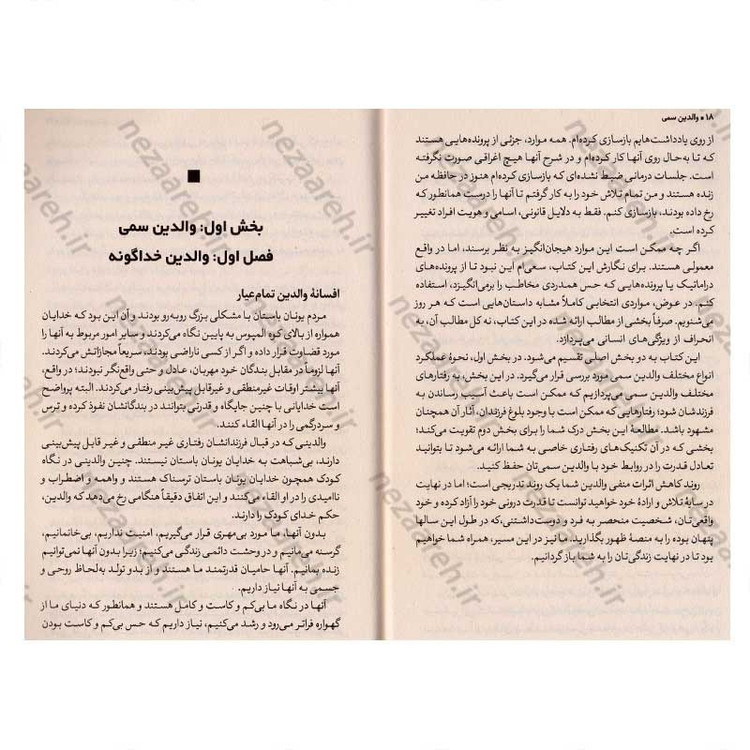 ۱۸ • والدین سمی
از روی یادداشت‌هایم بازسازی کرده‌ام. همه موارد، جزئی از پرونده‌هایی هستند
که تا به‌حال روی آنها کار کرده‌ام و در شرح آنها هیچ اغراقی صورت نگرفته
است. جلسات درمانی ضبط نشده‌ای که بازسازی کرده‌ام هنوز در حافظه من
زنده هستند و من تمام تلاش خود را به کار گرفتم تا آنها را درست همانطور که
رخ داده بودند، بازسازی کنم. فقط به دلایل قانونی، اسامی و هویت افراد تغییر
کرده است.
اگر چه ممکن است این موارد هیجان‌انگیز به نظر برسند، اما در واقع
معمولی هستند. برای نگارش این کتاب، سعی‌ام این نبود تا از پرونده‌های
دراماتیک یا پرونده‌هایی که حس همدردی مخاطب را برمی‌انگیزد، استفاده
کنم. در عوض، مواردی انتخابی کاملاً مشابه داستان‌هایی است که هر روز
می‌شنویم. صرفاً بخشی از مطالب ارائه شده در این کتاب، نه کل مطالب آن، به
انحراف از ویژگی‌های انسانی می‌پردازد.
این کتاب به دو بخش اصلی تقسیم می‌شود. در بخش اول، نحوهٔ عملکرد
انواع مختلف والدین سمی مورد بررسی قرار می‌گیرد. در این بخش، به رفتارهای
مختلف والدین سمی می‌پردازیم که ممکن است باعث آسیب رساندن به
فرزندشان شود؛ رفتارهایی که ممکن است با وجود بلوغ فرزندان، آثار آن همچنان
مشهود باشد. مطالعهٔ این بخش درک شما را برای بخش دوم تقویت می‌کند؛
بخشی که در آن تکنیک‌های رفتاری خاصی به شما ارائه می‌شود تا بتوانید
تعادل قدرت را در روابط خود با والدین سمی‌تان حفظ کنید.
روند کاهش اثرات منفی والدین شما یک روند تدریجی است؛ اما در نهایت
در سایهٔ تلاش و ارادهٔ خود خواهید توانست تا قدرت درونی خود را آزاد کرده و خود
واقعی‌تان، شخصیت منحصر به فرد و دوست‌داشتنی‌، که در طول این سالها
پنهان بوده را به منصهٔ ظهور بگذارید. ما نیز در این مسیر، همراه شما خواهیم
بود تا در نهایت زندگی‌تان را به شما بازگردانیم.
بخش اول: والدین سمی
فصل اول: والدین خداگونه
افسانهٔ والدین تمام‌عیار
مردم یونان باستان با مشکلی بزرگ روبه‌رو بودند و آن این بود که خدایان
همواره از بالای کوه المپوس به پایین نگاه می‌کردند و سایر امور مربوط به آنها را
مورد قضاوت قرار داده و اگر از کسی ناراضی بودند، سریعاً مجازاتش می‌کردند.
آنها لزوماً در مقابل بندگان خود مهربان، عادل و حتی واقع‌نگر نبودند؛ در واقع،
آنها بیشتر اوقات غیرمنطقی و غیرقابل پیش‌بینی رفتار می‌کردند. البته پرواضح
است خدایانی با چنین جایگاه و قدرتی بتوانند در بندگانشان نفوذ کرده و ترس
و سردرگمی را در آنها القاء کنند.
والدینی که در قبال فرزندانشان رفتاری غیر منطقی و غیر قابل پیش‌بینی
دارند، بی‌شباهت به خدایان یونان باستان نیستند. چنین والدینی در نگاه
کودک همچون خدایان یونان باستان ترسناک هستند و واهمه و اضطراب و
ناامیدی را در او القاء می‌کنند و این اتفاق دقیقاً هنگامی رخ می‌دهد که والدین،
حکم خدای کودک را دارند.
بدون آنها، ما مورد بی‌مهری قرار می‌گیریم، امنیت نداریم، بی‌خانمانیم،
گرسنه می‌مانیم و در وحشت دائمی زندگی می‌کنیم؛ زیرا بدون آنها نمی‌توانیم
زنده بمانیم. آنها حامیان قدرتمند ما هستند و از بدو تولد به‌لحاظ روحی و
جسمی به آنها نیاز داریم.
آنها در نگاه ما بی‌کم و کاست و کامل هستند و همانطور که دنیای ما از
گهواره فراتر می‌رود و رشد می‌کنیم، نیاز داریم که حس بی‌کم و کاست بودن
nezaareh.ir
nezaareh.ir
nezaareh.ir
nezaareh.ir
nezaareh.ir
nezaareh.ir